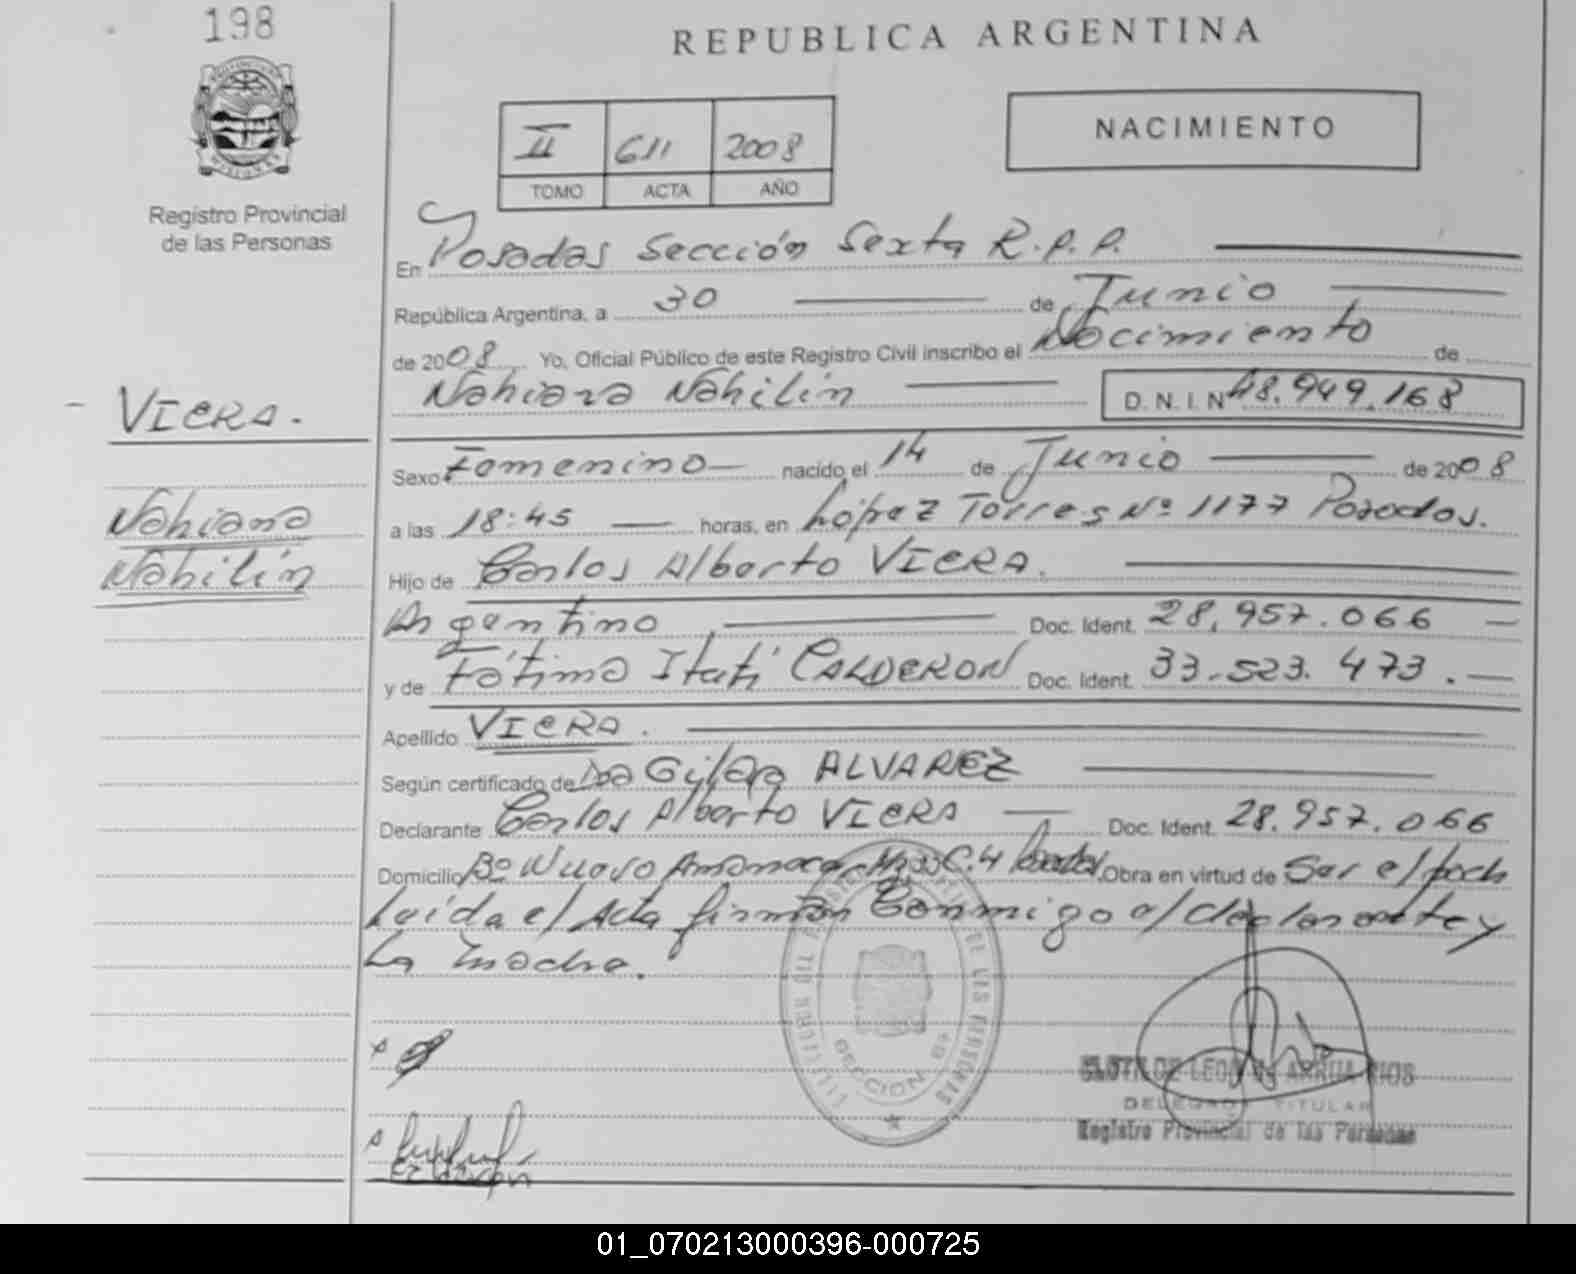 198
REPUBLICA ARGENTINA
II 611 2008
TOMO ACTA AÑO
NACIMIENTO
Registro Provincial
de las Personas
En Posadas Sección Sexta R.P.P.
República Argentina, a 30 de Junio
de 2008 Yo, Oficial Público de este Registro Civil inscribo el Nacimiento de
Nahiara Nahilín D.N.I. Nº 48.949.168
VIERA.
Nahiara
Nahilín
Sexo Femenino nacido el 14 de Junio de 2008
a las 18:45 horas, en López Torres Nº 1177 Posadas.
Hijo de Carlos Alberto VIERA.
Argentino Doc. Ident. 28.957.066
y de Fátima Itatí CALDERON Doc. Ident. 33.523.473.
Apellido VIERA.
Según certificado de Dra ALVAREZ
Declarante Carlos Alberto VIERA Doc. Ident. 28.957.066
Domicilio Bº Nuevo C.4 Obra en virtud de Ser el
Leída el Acta firman Conmigo el declarante y
La madre.
SECCION 6ª
DE LEON DE ARRUA RIOS
DELEGADA TITULAR
Registro Provincial de las Personas
01_070213000396-000725